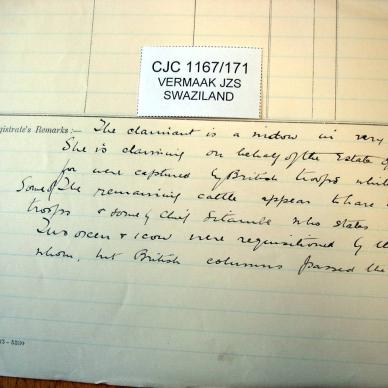 CJC 1167/171
VERMAAK JZS
SWAZILAND
gistrate's Remarks:— The claimant is a widow in very
She is claiming on behalf of the Estate of
for were captured by British troops whil
Some of The remaining cattle appear to have
troops & some by Chief who states
Two oxen & 1 cow were requisitioned by
whom, but British columns passed the